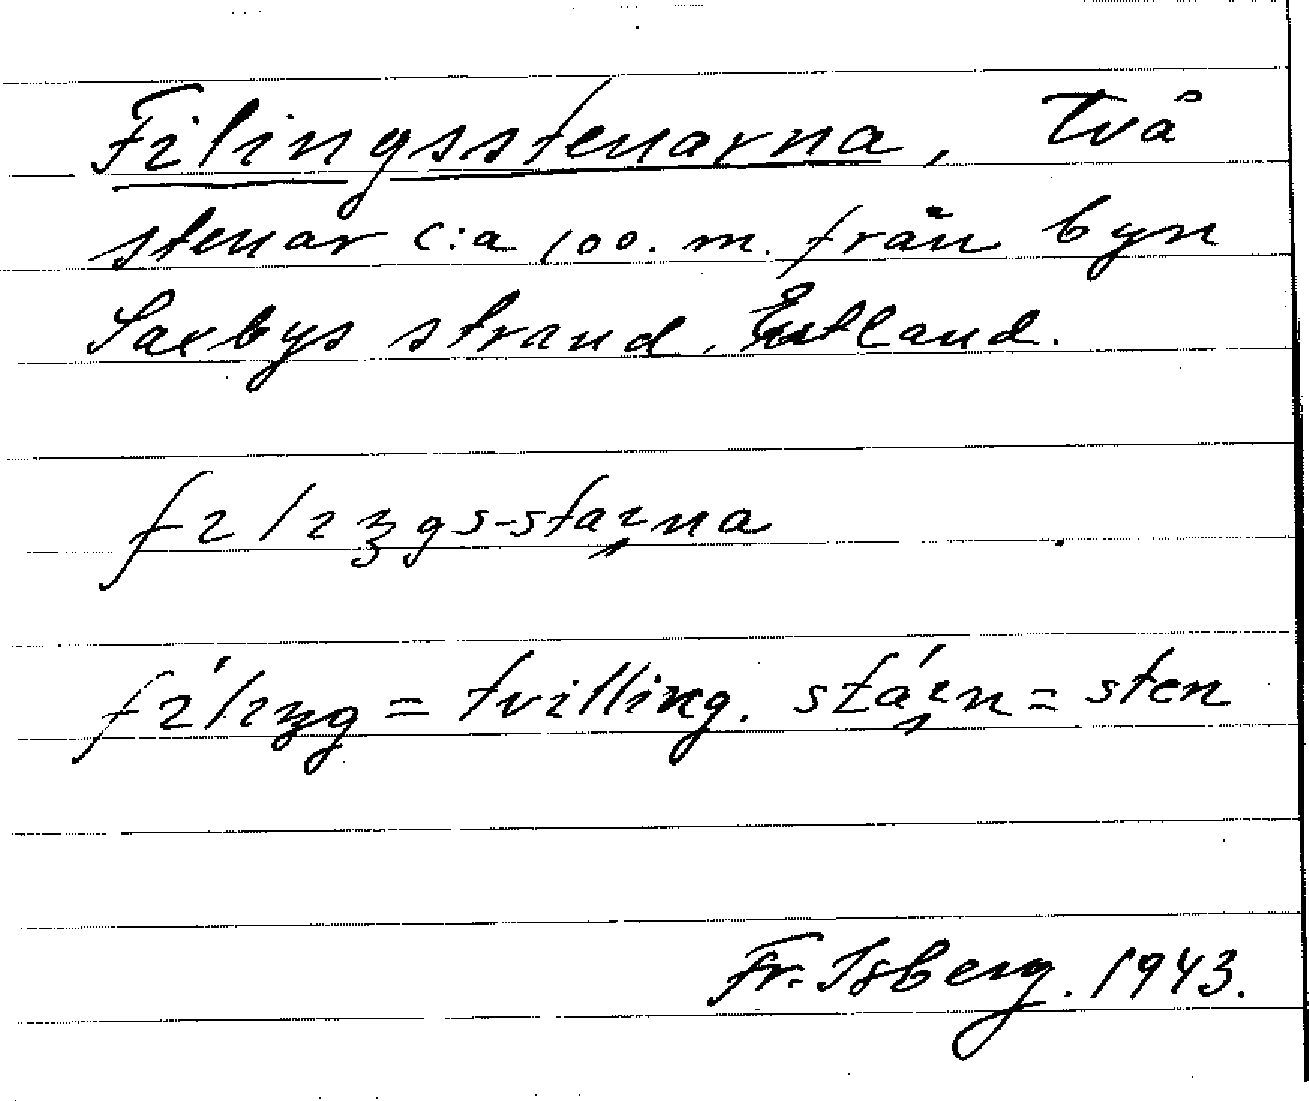 Filingsstenarna, Två
stenar c:a 100. m. från byn
Saxbys strand, Estland.
filiŋgs-staɩ̨na
fíliŋg = tvilling. stáɩ̨n = sten
Fr. Isberg. 1943.